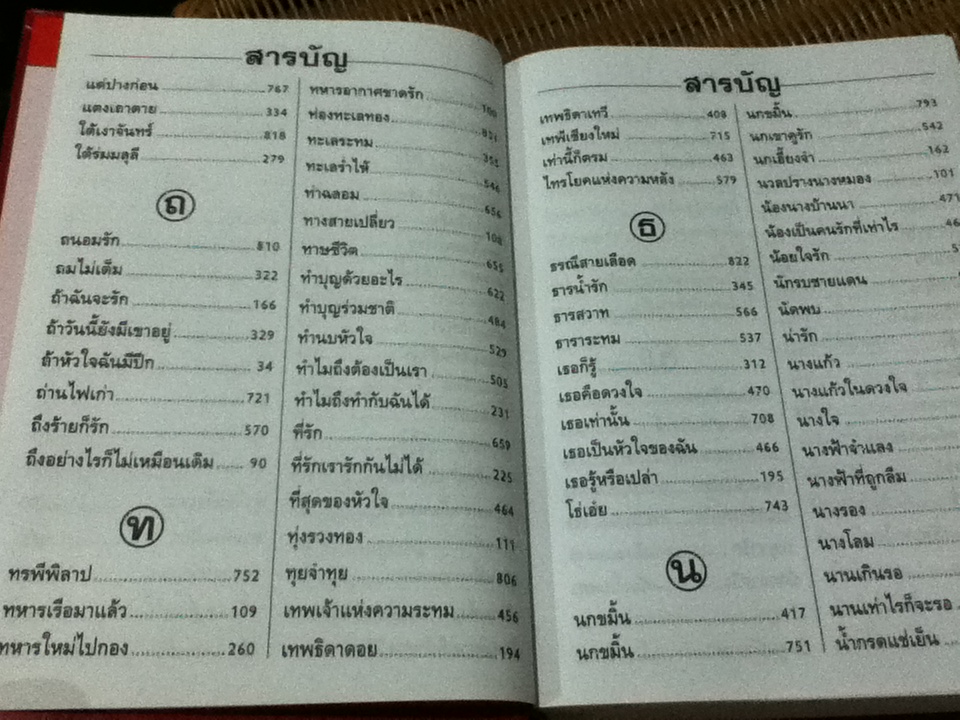 สารบัญ
แต่ปางก่อน 767
แตงเถาตาย 334
ใต้เงาจันทร์ 818
ใต้ร่มมลุลี 279
ถ
ถนอมรัก 810
ถมไม่เต็ม 322
ถ้าฉันจะรัก 166
ถ้าวันนี้ยังมีเขาอยู่ 329
ถ้าหัวใจฉันมีปีก 34
ถ่านไฟเก่า 721
ถึงร้ายก็รัก 570
ถึงอย่างไรก็ไม่เหมือนเดิม 90
ท
ทรพีพิลาป 752
ทหารเรือมาแล้ว 109
ทหารใหม่ไปกอง 260
ทหารอากาศขาดรัก
ท่องทะเลทอง
ทะเลระทม
ทะเลร่ำไห้ 546
ท่าฉลอม 656
ทางสายเปลี่ยว
ทาษชีวิต 655
ทำบุญด้วยอะไร 622
ทำบุญร่วมชาติ 484
ทำนบหัวใจ 529
ทำไมถึงต้องเป็นเรา 505
ทำไมถึงทำกับฉันได้ 231
ที่รัก 659
ที่รักเรารักกันไม่ได้ 225
ที่สุดของหัวใจ 464
ทุ่งรวงทอง 111
ทุยจ๋าทุย 806
เทพเจ้าแห่งความระทม 456
เทพธิดาดอย 194
สารบัญ
เทพธิดาเทวี 408
เทพีเชียงใหม่ 715
เท่านี้ก็ตรม 463
ไทรโยคแห่งความหลัง 579
ธ
ธรณีสายเลือด 822
ธารน้ำรัก 345
ธารสวาท 566
ธาราระทม 537
เธอก็รู้ 312
เธอคือดวงใจ 470
เธอเท่านั้น 708
เธอเป็นหัวใจของฉัน 466
เธอรู้หรือเปล่า 195
โธ่เอ๋ย 743
น
นกขมิ้น 417
นกขมิ้น 751
นกขมิ้น 793
นกเขาคูรัก 542
นกเอี้ยงจ๋า 162
นวลปรางนางหมอง 101
น้องนางบ้านนา 471
น้องเป็นคนรักที่เท่าไร
น้อยใจรัก
นักรบชายแดน
นัดพบ
น่ารัก
นางแก้ว
นางแก้วในดวงใจ
นางใจ
นางฟ้าจำแลง
นางฟ้าที่ถูกลืม
นางรอง
นางโลม
นานเกินรอ
นานเท่าไรก็จะรอ
น้ำกรดแช่เย็น